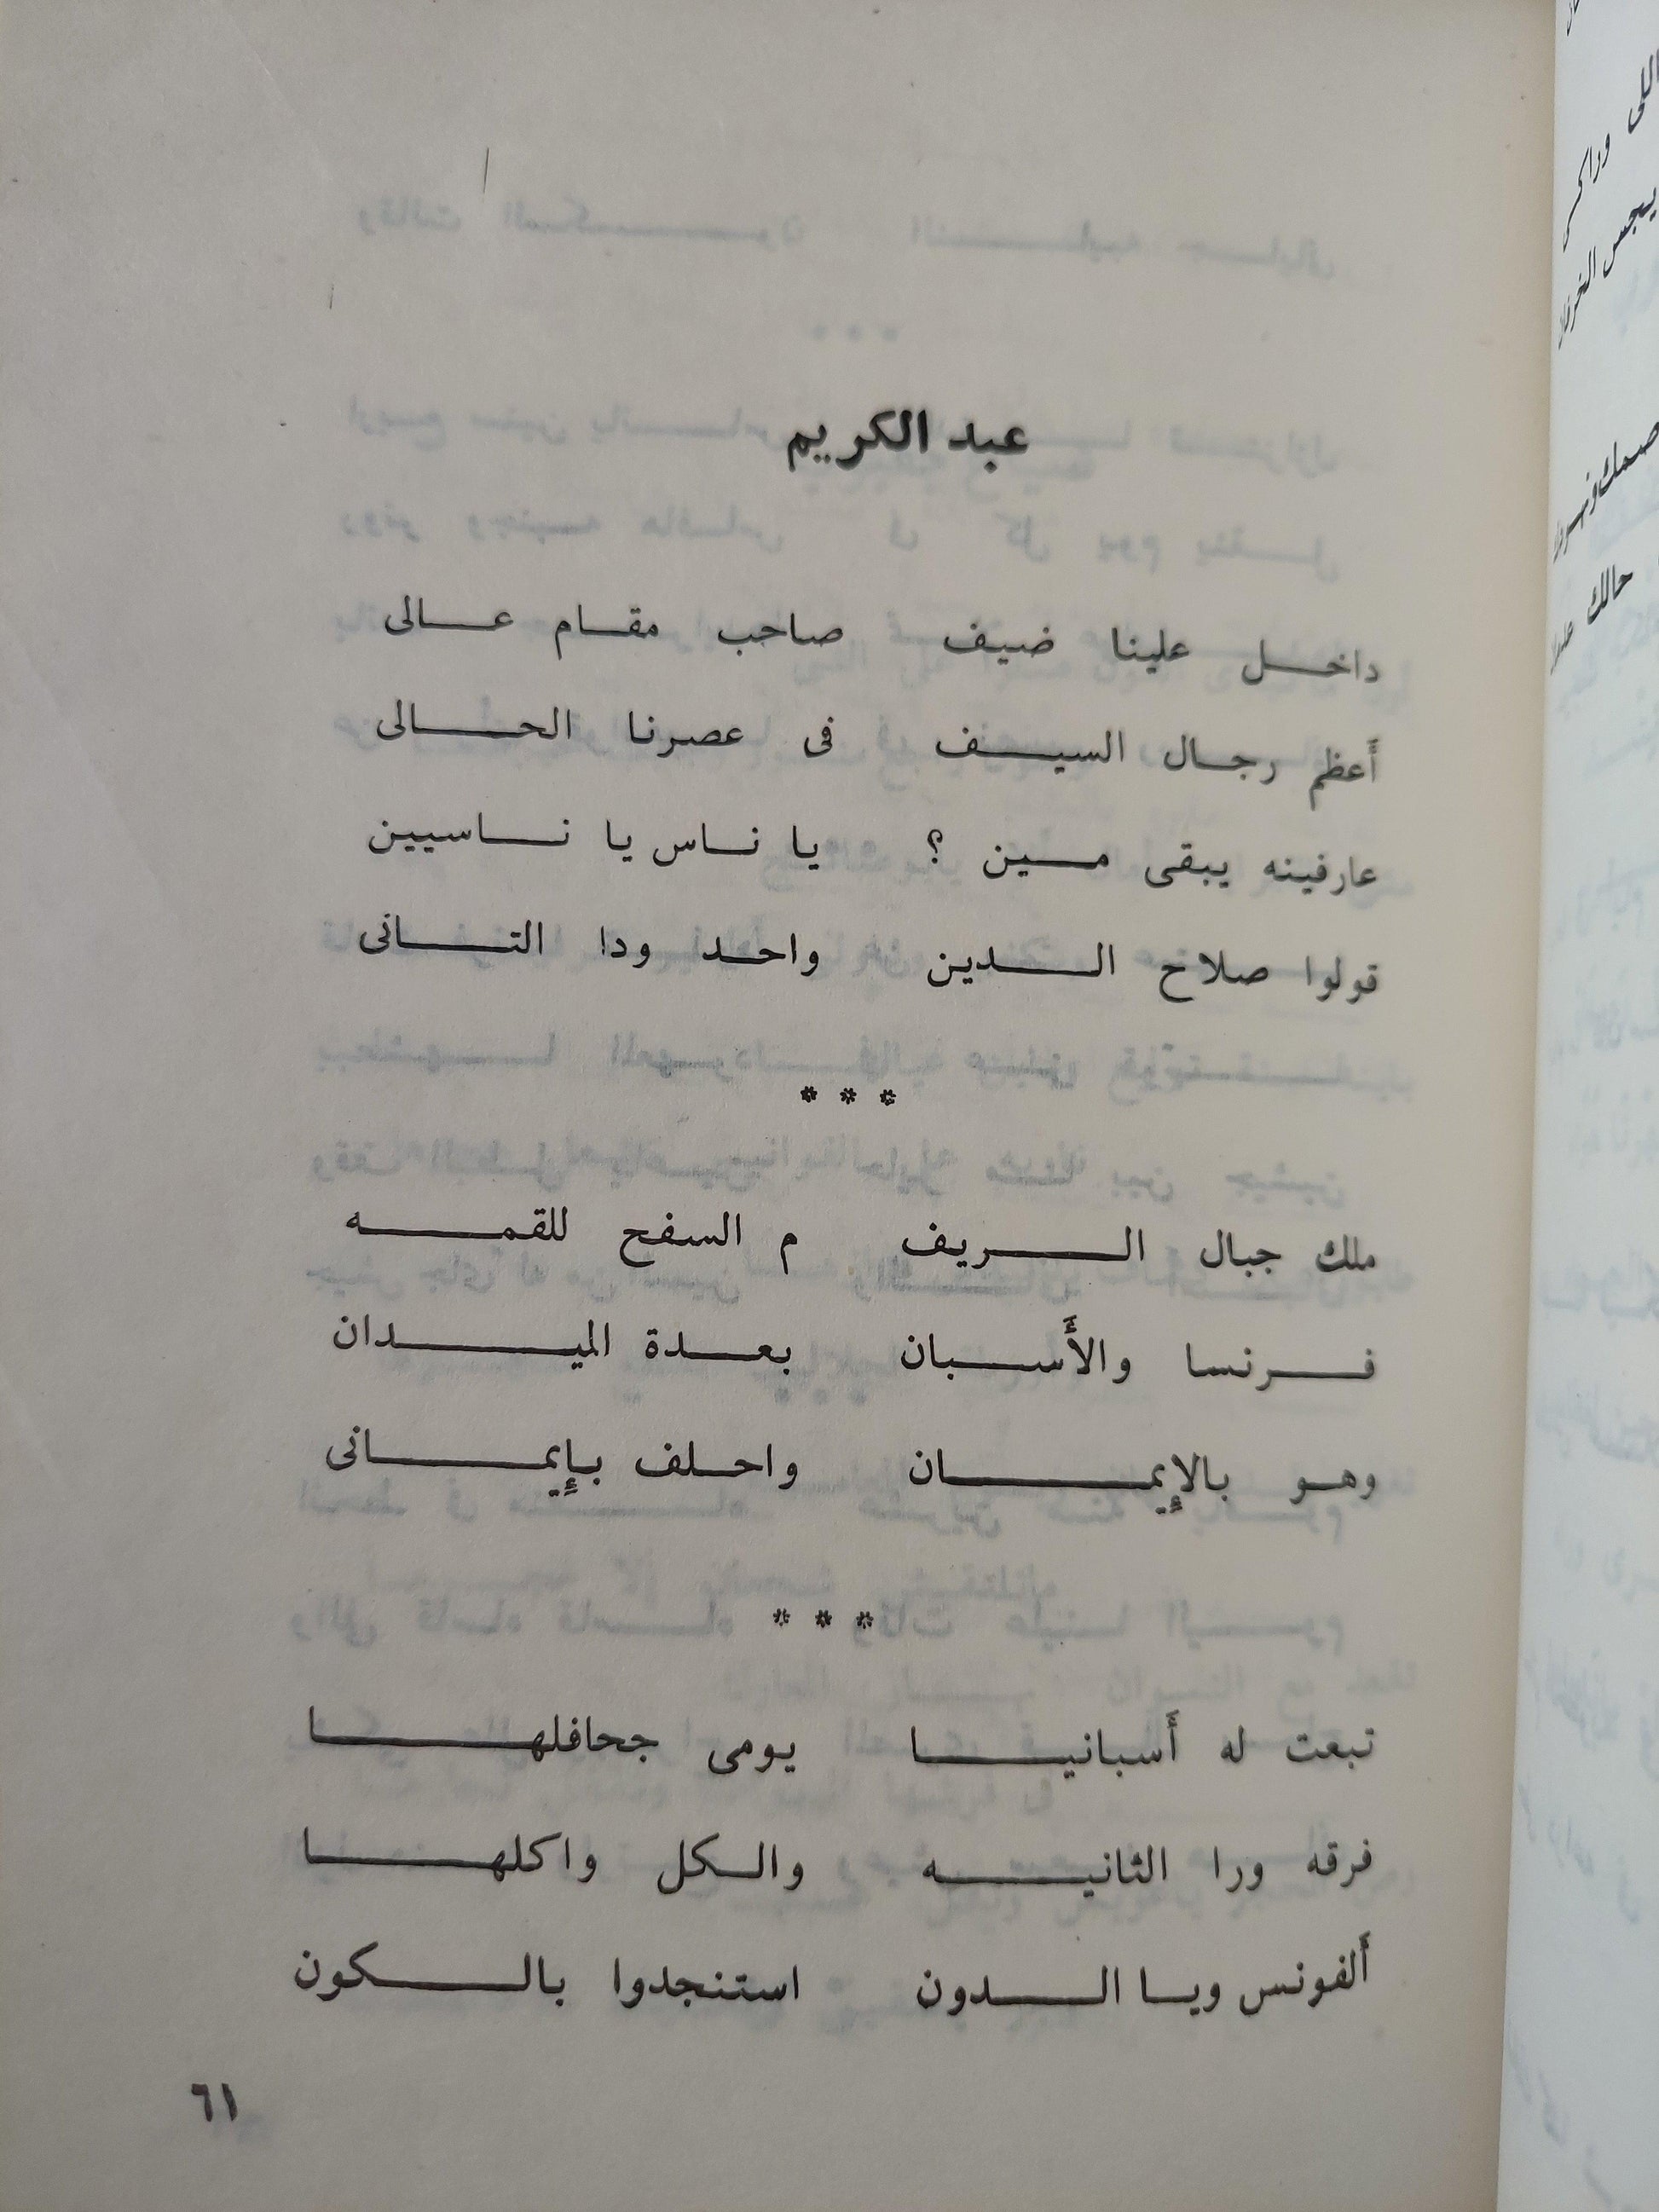 عبد الكريم
داخل علينا ضيف صاحب مقام عالى
أعظم رجال السيف فى عصرنا الحالى
عارفينه يبقى مين ؟ يا ناس يا ناسيين
قولوا صلاح الدين واحد ودا التانى
* * *
ملك جبال الريف م السفح للقمه
فرنسا والأسبان بعدة الميدان
وهو بالإيمان واحلف بإيمانى
* * *
تبعت له أسبانيا يومى جحافلها
فرقه ورا الثانيه والكل واكلها
ألفونس ويا الدون استنجدوا بالكون
٦١
اللى وراكى
حالك